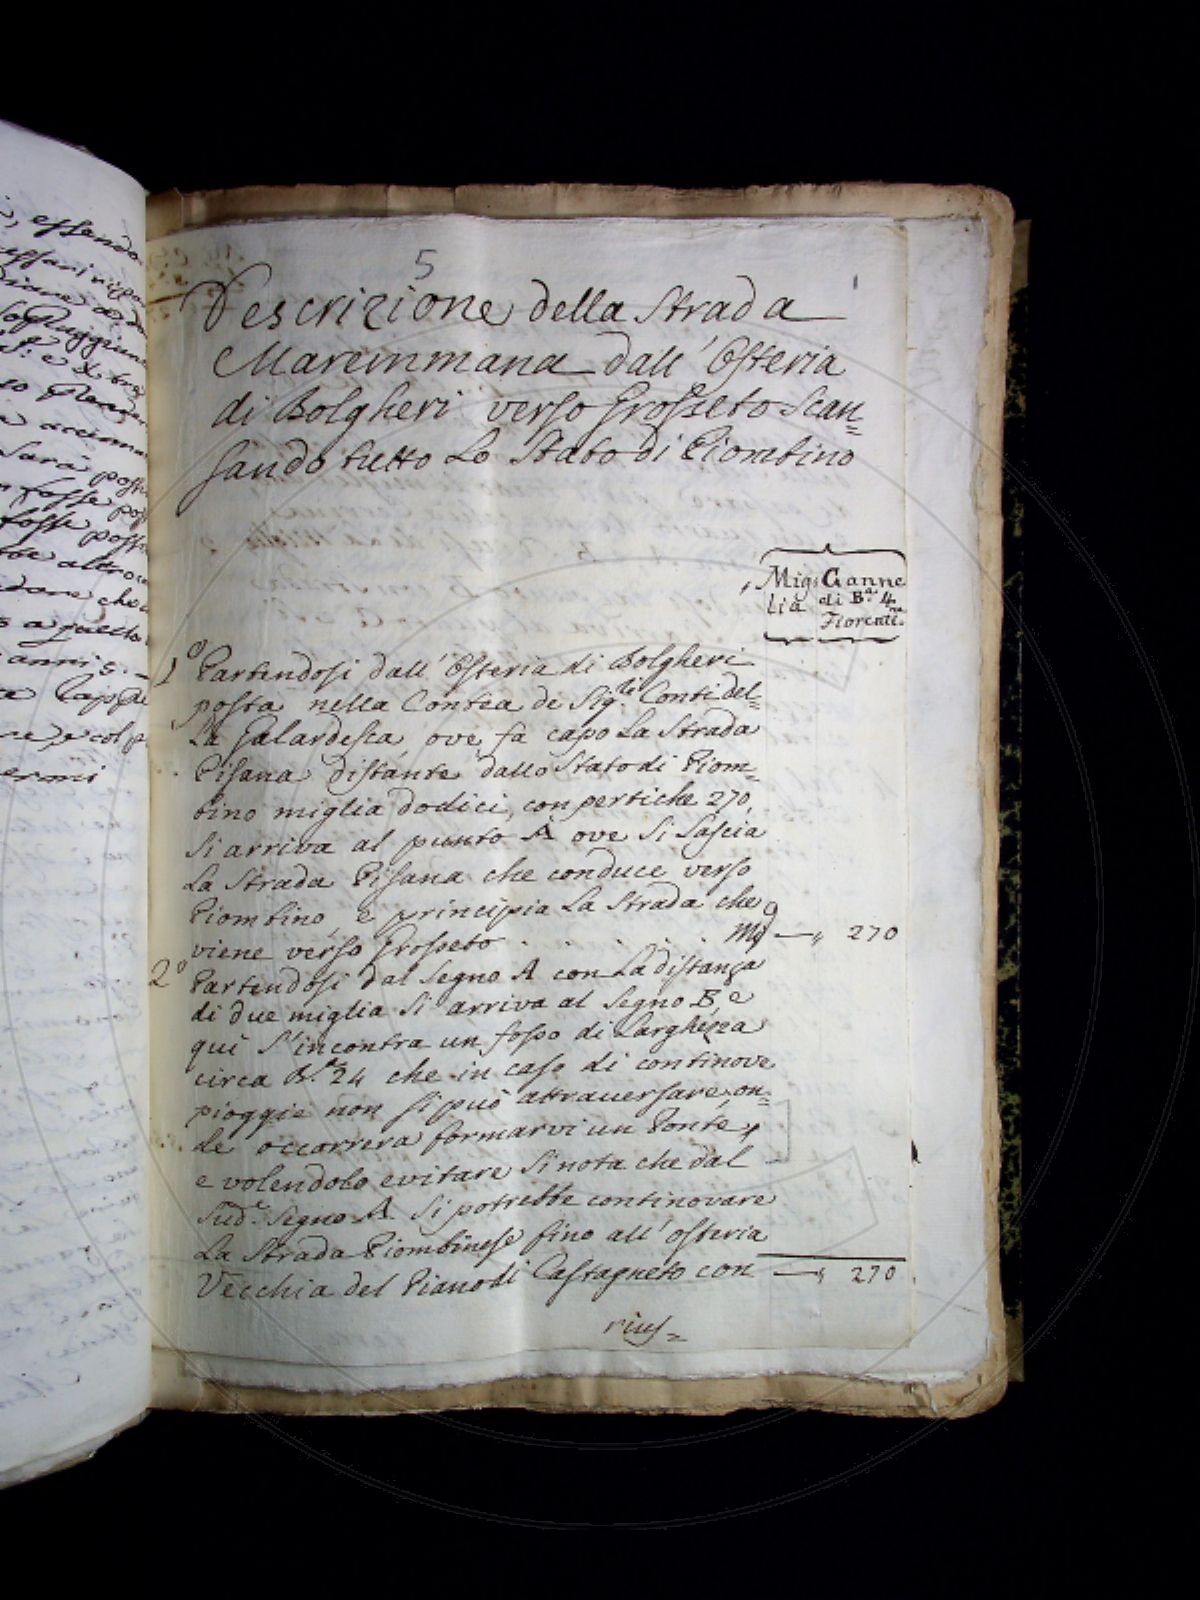 5
Descrizione della Strada
Maremmana dall' Osteria
di Bolgheri verso Grosseto Scan=
sando tutto Lo Stato di Piombino
Mig= Canne
lia di Ba 4
Fiorenne.
1º Partendosi dall' Osteria di Bolgheri
posta nella Contea de Sig.ri Conti del=
La Galardesca, ove fà capo La Strada
Pisana distante dallo Stato di Piom=
bino miglia dodici, con pertiche 270,
Si arriva al punto A ove Si Lascia
La Strada Pisana che conduce verso
Piombino, e principia La Strada che
viene verso Grosseto . . . Mg — " 270
2º Partendosi dal Segno A con La distanza
di due miglia Si arriva al Segno B, e
qui S'incontra un fosso di Larghezza
circa B.a 24 che in caso di continove
pioggie non si può attraversare, on=
de occorrera formarvi un Ponte,
e volendolo evitare Si nota che dal
Sud.o Segno A Si potrebbe continovare
La Strada Piombinese fino all' osteria
Vecchia del Piano di Castagneto con — " 270
rius=
essendo
a questo
anni 5.